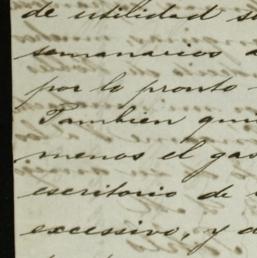 de utilidad
semanarios
por lo pronto
Tambien
menos el
escritorio de
excessivo, y